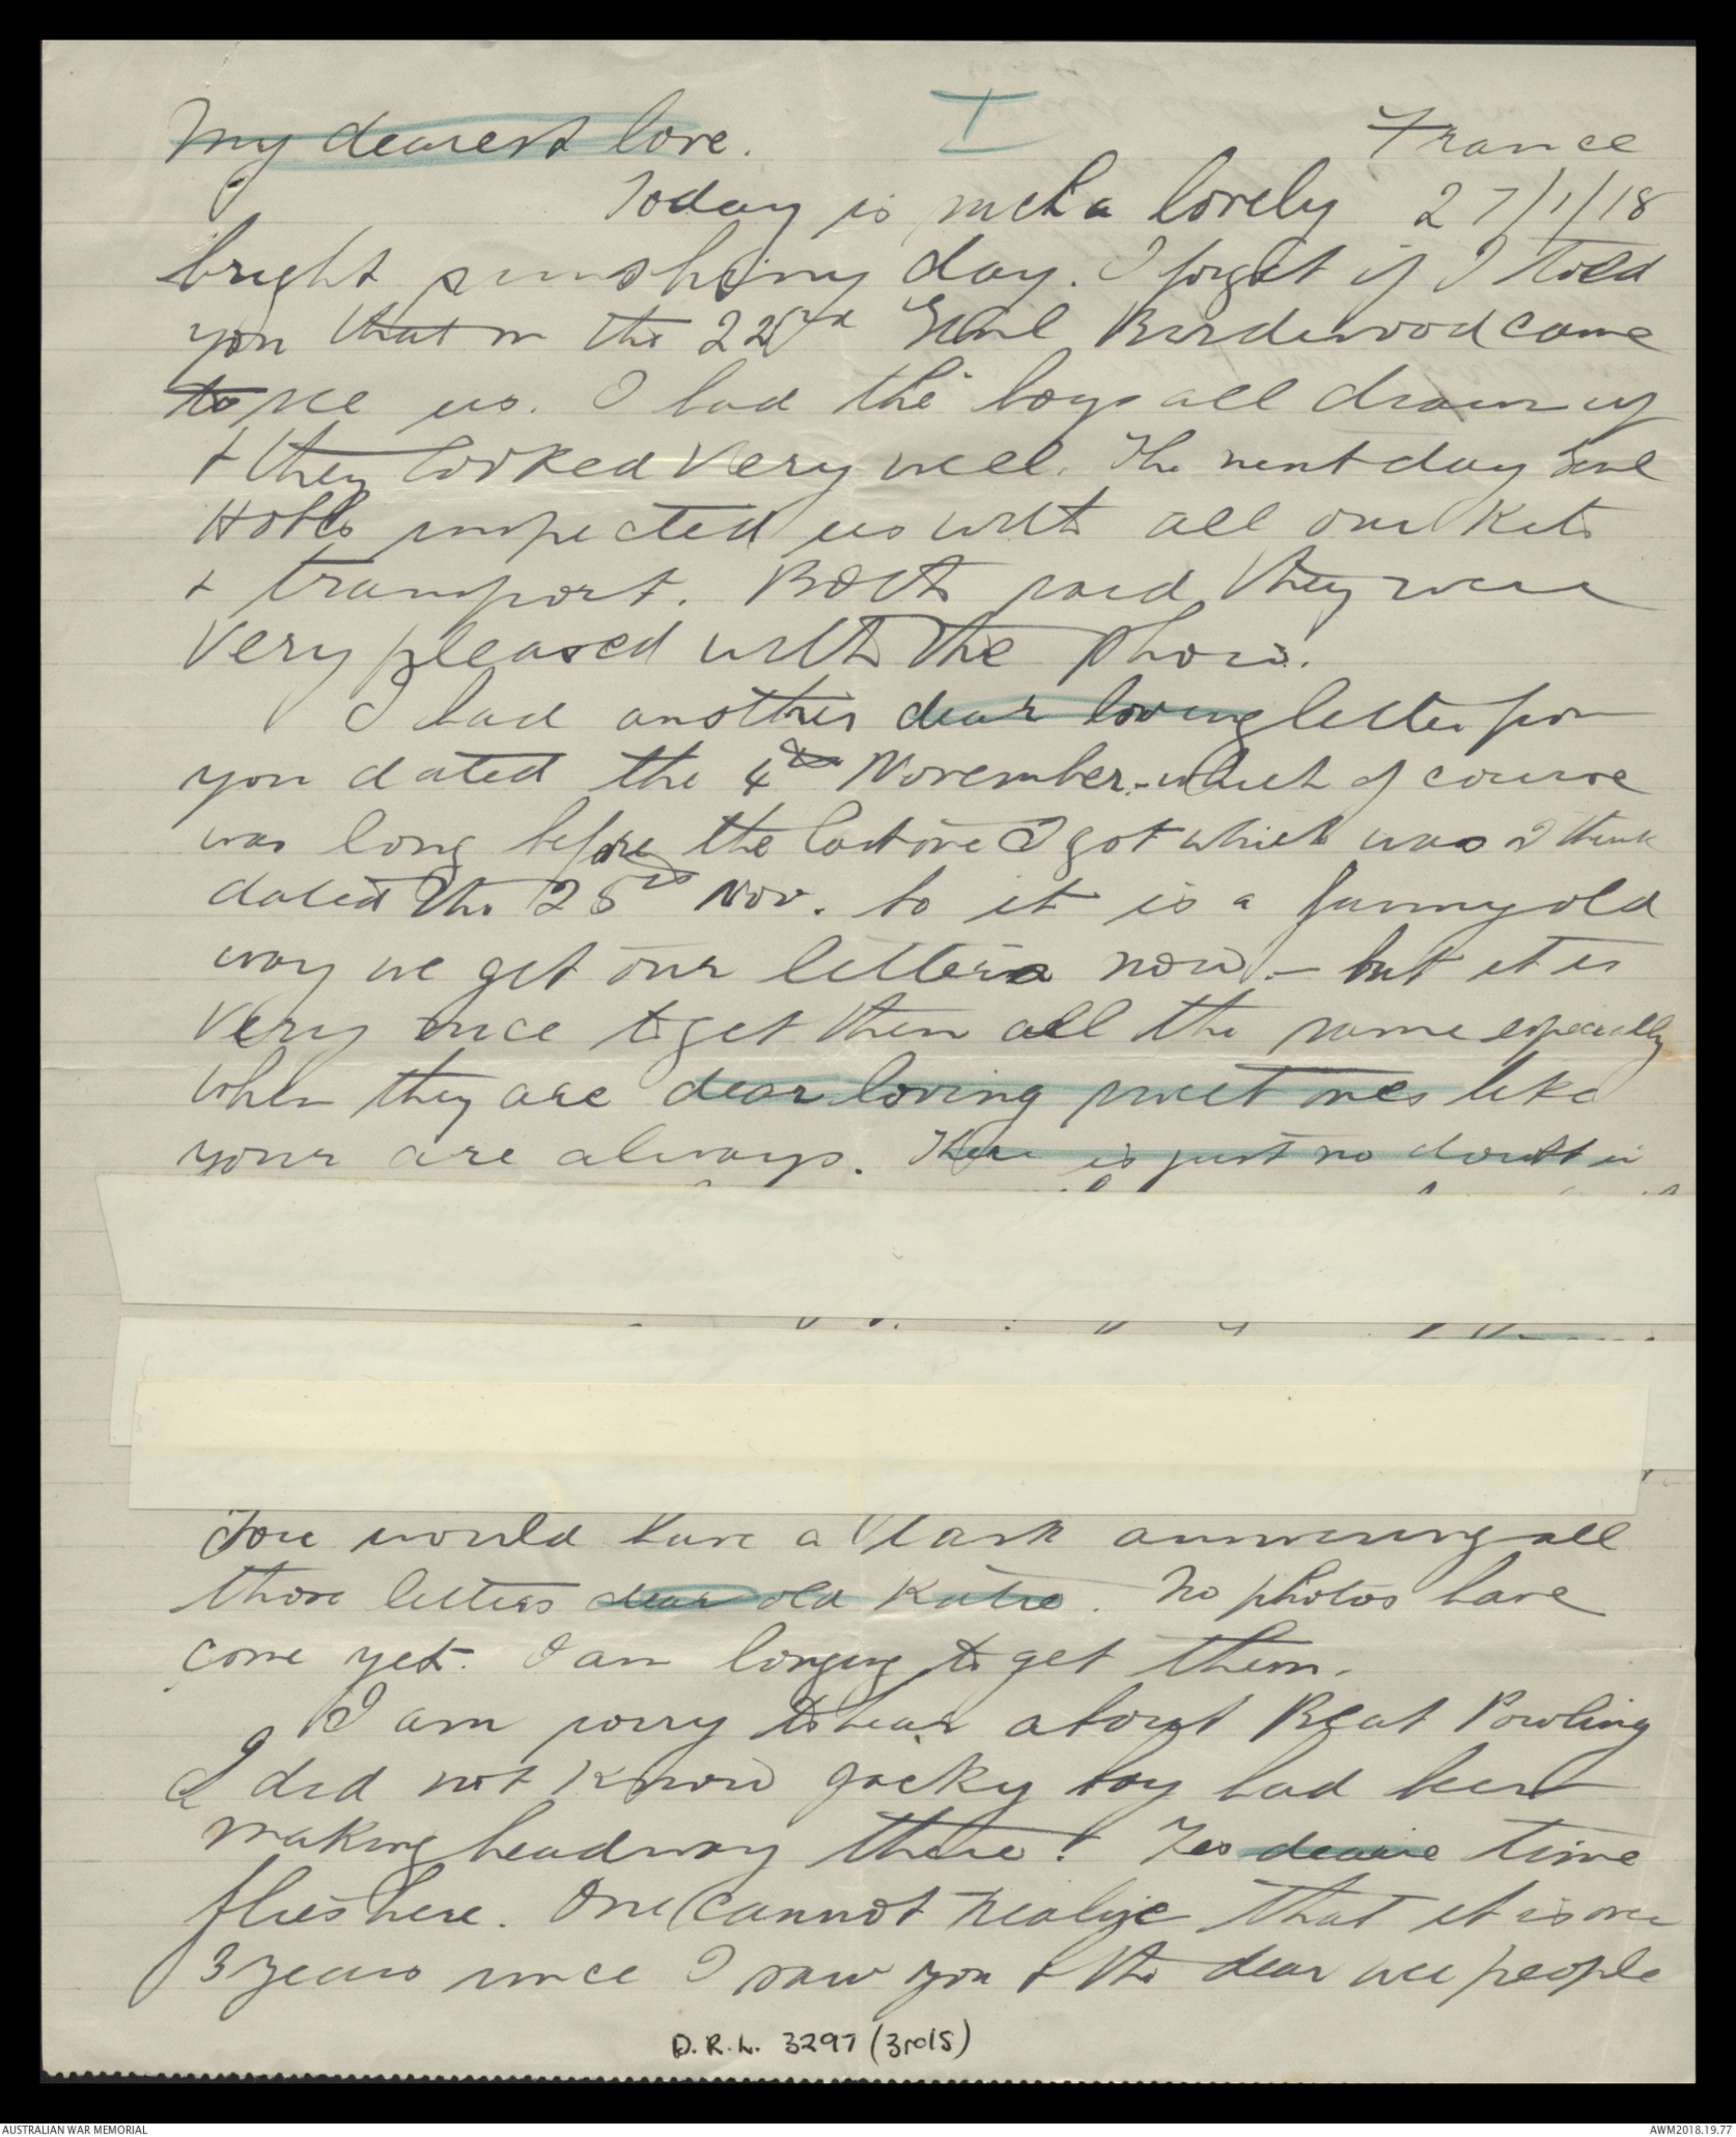 I
My dearest love. France
Today is such a lovely 27/1/18
bright sunshiny day. I forget if I told
you that on the 22nd Genl Birdwood came
to see us. I had the boys all drawn up
& they looked very well. The next day Genl
Hobbs inspected us with all our kits
& transport. Both said they were
very pleased with the show.
I had another dear loving letter from
you dated the 4th November - which of course
was long before the last one I got which was I think
dated the 25th Nov. so it is a funny old
way we get our letters now - but it is
very nice to get them all the same especially
when they are dear loving sweet ones like
your are always. There is just no doubt in
You would have a task answering all
those letters dear old Katie. No photos have
come yet. I am longing to get them.
I am sorry to hear about Beat Powling
I did not know Jacky boy had been
making headway there! Yes dearie time
flies here. One cannot realize that it is over
3 years since I saw you & the dear wee people
D.R.L. 3297 (3rd/5)
AUSTRALIAN WAR MEMORIAL AWM2018.19.77